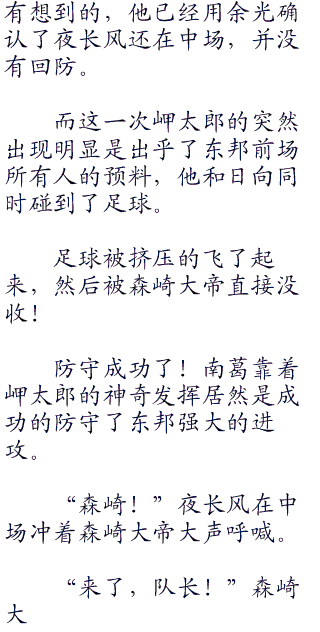 有想到的，他已经用余光确
认了夜长风还在中场，并没
有回防。
而这一次岬太郎的突然
出现明显是出乎了东邦前场
所有人的预料，他和日向同
时碰到了足球。
足球被挤压的飞了起
来，然后被森崎大帝直接没
收！
防守成功了！南葛靠着
岬太郎的神奇发挥居然是成
功的防守了东邦强大的进
攻。
“森崎！”夜长风在中
场冲着森崎大帝大声呼喊。
“来了，队长！”森崎
大